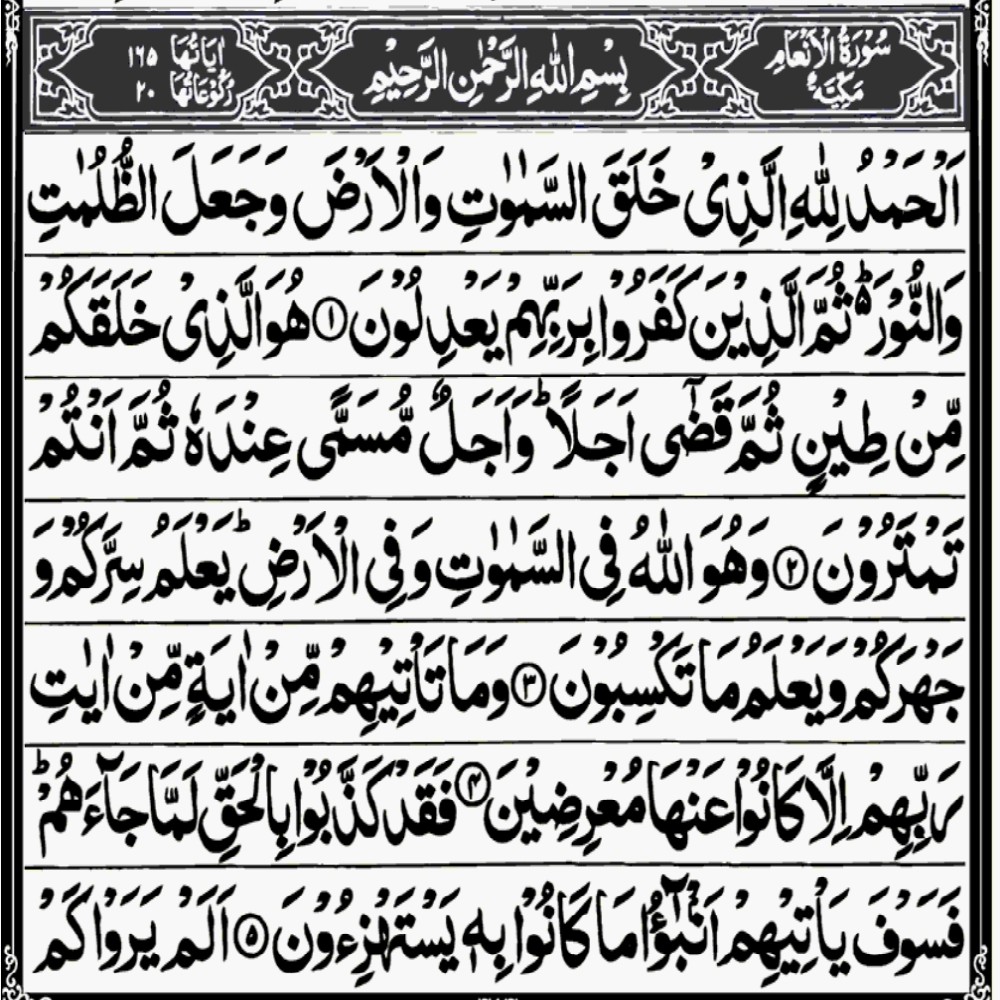 سُوْرَةُ الْاَنْعَامِ مَكِّيَّةٌ
بِسْمِ اللّٰهِ الرَّحْمٰنِ الرَّحِيْمِ
اٰيَاتُهَا ١٦٥
رُكُوْعَاتُهَا ٢٠
اَلْحَمْدُ لِلّٰهِ الَّذِىْ خَلَقَ السَّمٰوٰتِ وَالْاَرْضَ وَجَعَلَ الظُّلُمٰتِ
وَالنُّوْرَ ؕ۬ ثُمَّ الَّذِيْنَ كَفَرُوْا بِرَبِّهِمْ يَعْدِلُوْنَ ① هُوَ الَّذِىْ خَلَقَكُمْ
مِّنْ طِيْنٍ ثُمَّ قَضٰۤى اَجَلًا ؕ وَاَجَلٌ مُّسَمًّى عِنْدَهٗ ثُمَّ اَنْتُمْ
تَمْتَرُوْنَ ② وَهُوَ اللّٰهُ فِى السَّمٰوٰتِ وَفِى الْاَرْضِ ؕ يَعْلَمُ سِرَّكُمْ وَ
جَهْرَكُمْ وَيَعْلَمُ مَا تَكْسِبُوْنَ ③ وَمَا تَاْتِيْهِمْ مِّنْ اٰيَةٍ مِّنْ اٰيٰتِ
رَبِّهِمْ اِلَّا كَانُوْا عَنْهَا مُعْرِضِيْنَ ④ فَقَدْ كَذَّبُوْا بِالْحَقِّ لَمَّا جَآءَهُمْ ؕ
فَسَوْفَ يَاْتِيْهِمْ اَنْۢبٰٓؤُا مَا كَانُوْا بِهٖ يَسْتَهْزِءُوْنَ ⑤ اَلَمْ يَرَوْا كَمْ